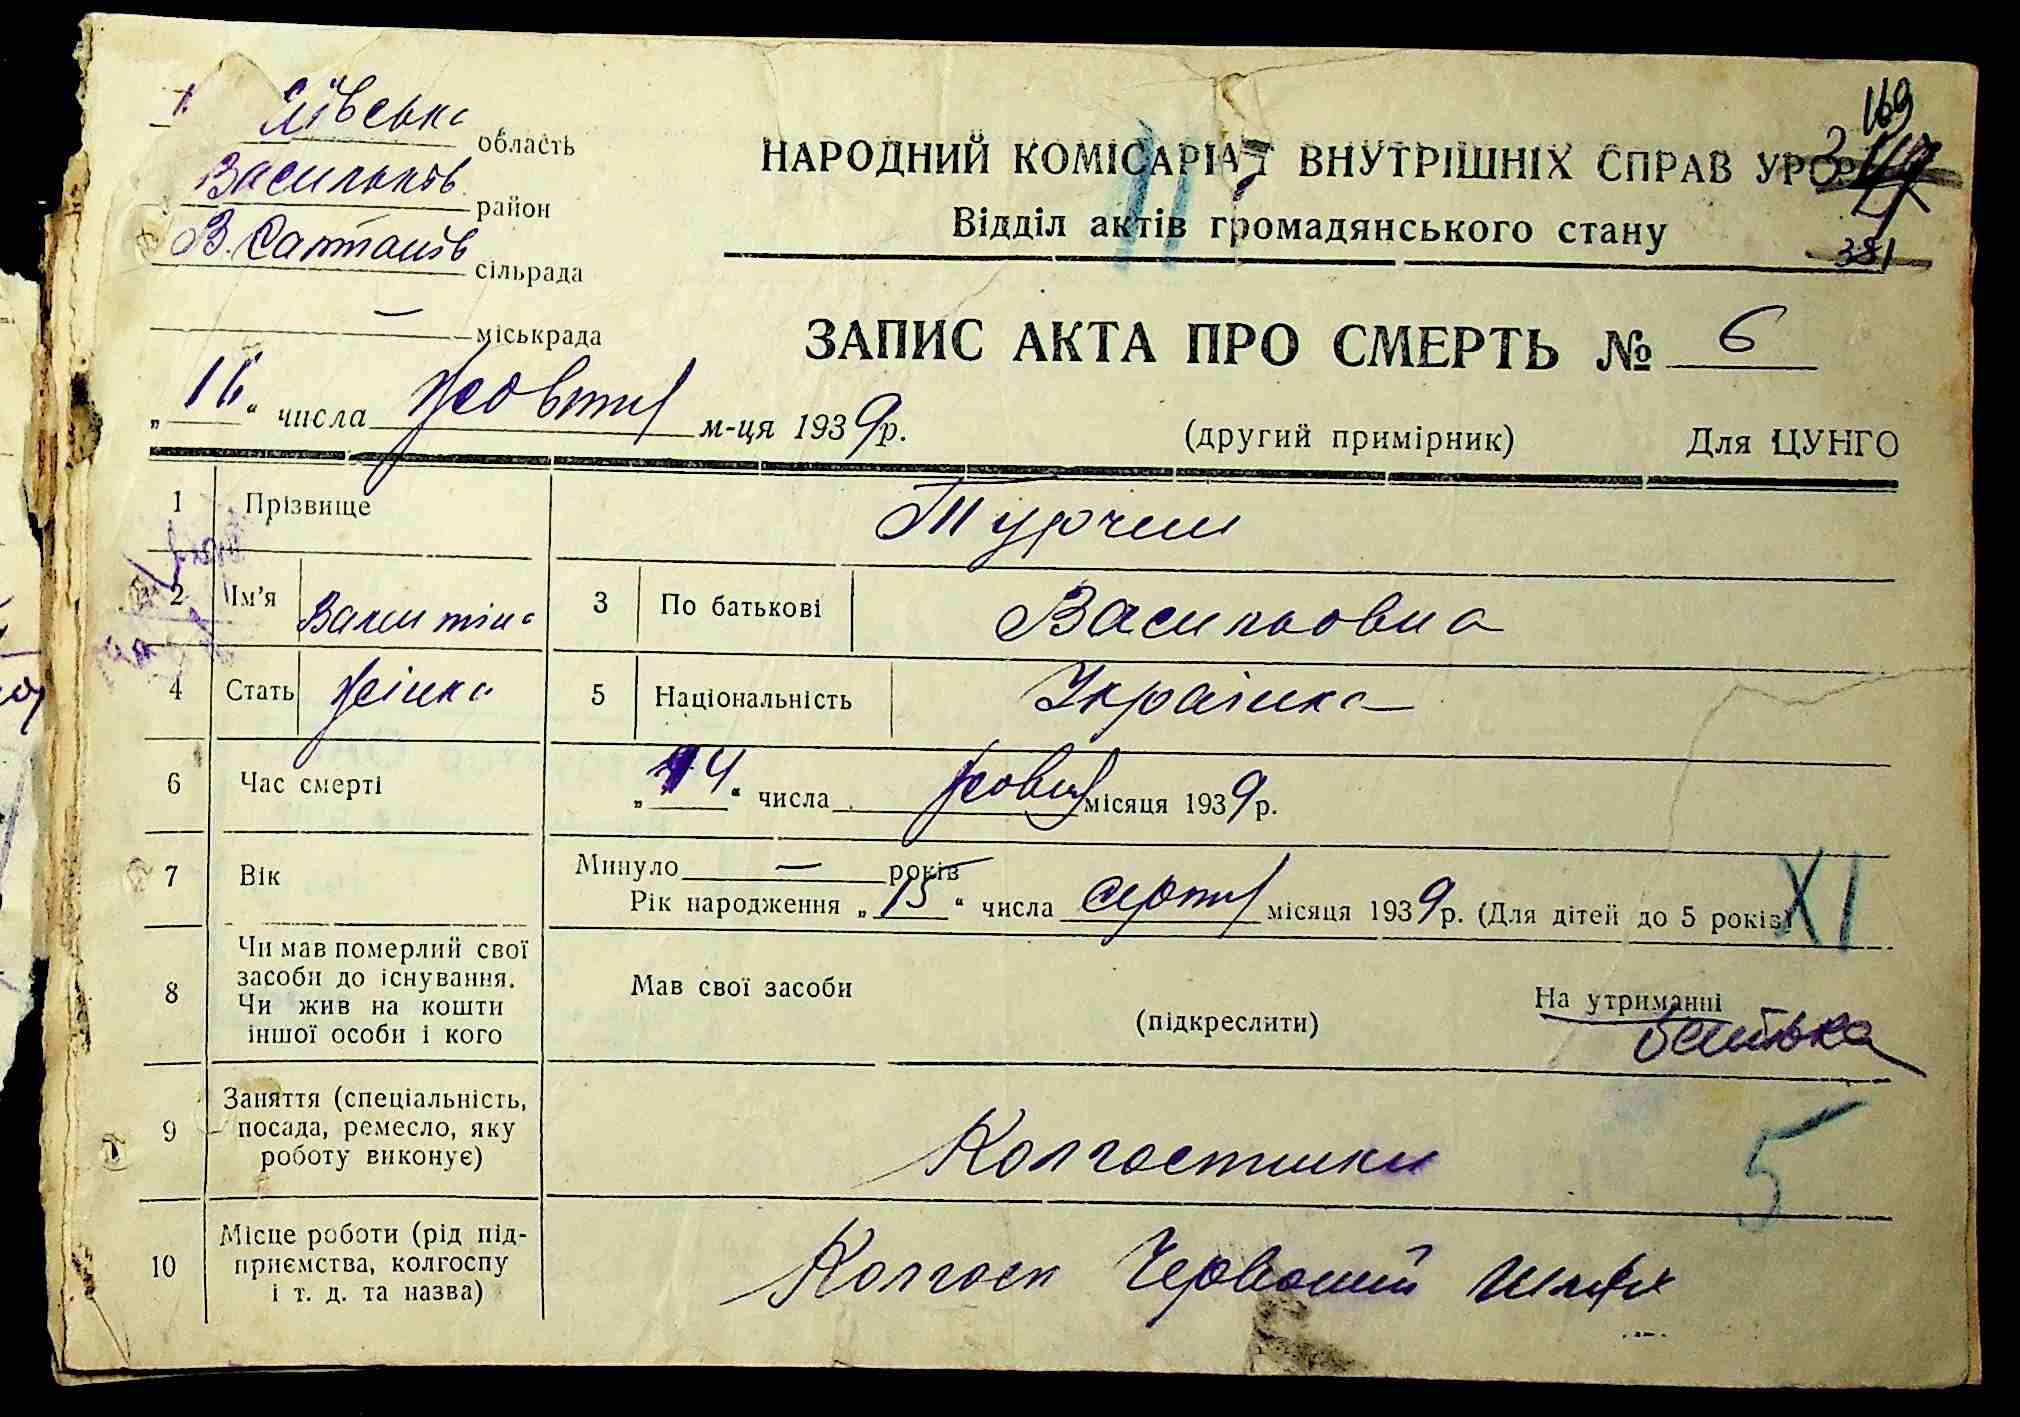 ївська область
Васильков район
В. Салтанів сільрада
— міськрада
169
381
НАРОДНИЙ КОМІСАРІАТ ВНУТРІШНІХ СПРАВ УРСР
Відділ актів громадянського стану
ЗАПИС АКТА ПРО СМЕРТЬ № 6
„16“ числа жовтня м-ця 1939р.
(другий примірник) Для ЦУНГО
1 Прізвище Турчин
2 Ім'я Валентина 3 По батькові Васильовна
4 Стать жінка 5 Національність Українка
6 Час смерті „14“ числа жовтня місяця 1939р.
7 Вік Минуло — років
Рік народження „15“ числа серпня місяця 1939р. (Для дітей до 5 років)
XI
8 Чи мав померлий свої засоби до існування. Чи жив на кошти іншої особи і кого
Мав свої засоби (підкреслити) На утриманні
батька
9 Заняття (спеціальність, посада, ремесло, яку роботу виконує) Колгоспники
5
10 Місце роботи (рід підприємства, колгоспу і т. д. та назва) Колгосп Червоний Шлях